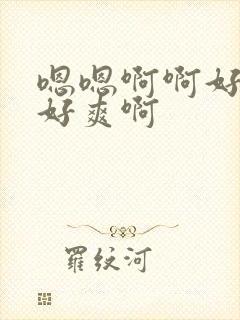 嗯嗯啊啊好
好爽啊
羅纹河